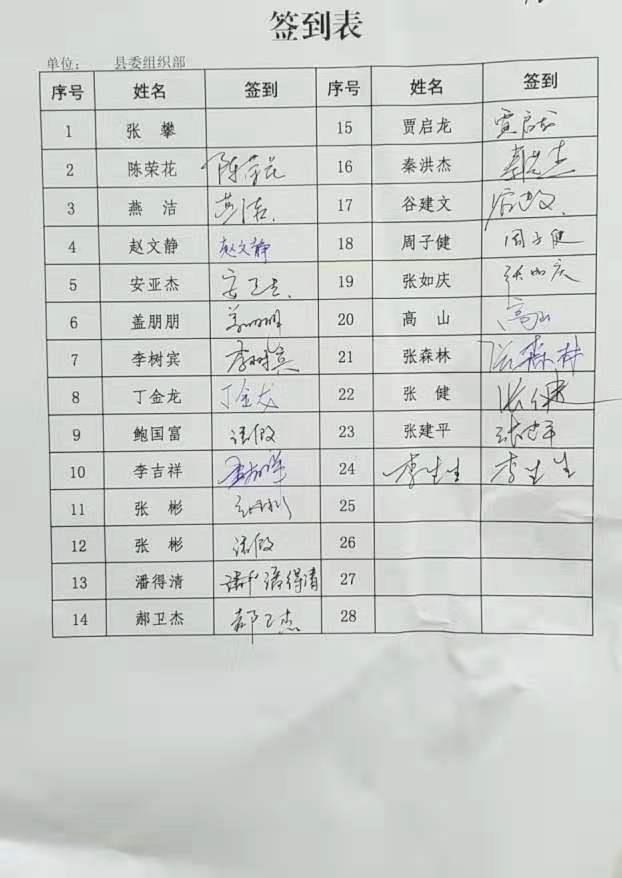 签到表
单位： 县委组织部
序号 姓名 签到 序号 姓名 签到
1 张 攀 15 贾启龙 贾启龙
2 陈荣花 陈荣花 16 秦洪杰 秦洪杰
3 燕 洁 燕洁 17 谷建文 谷建文
4 赵文静 赵文静 18 周子健 周子健
5 安亚杰 安亚杰 19 张如庆 张如庆
6 盖朋朋 盖朋朋 20 高 山 高山
7 李树宾 李树宾 21 张森林 张森林
8 丁金龙 丁金龙 22 张 健 张健
9 鲍国富 请假 23 张建平 张建平
10 李吉祥 李吉祥 24 李生生 李生生
11 张 彬 张彬 25
12 张 彬 请假 26
13 潘得清 潘得清 27
14 郝卫杰 郝卫杰 28